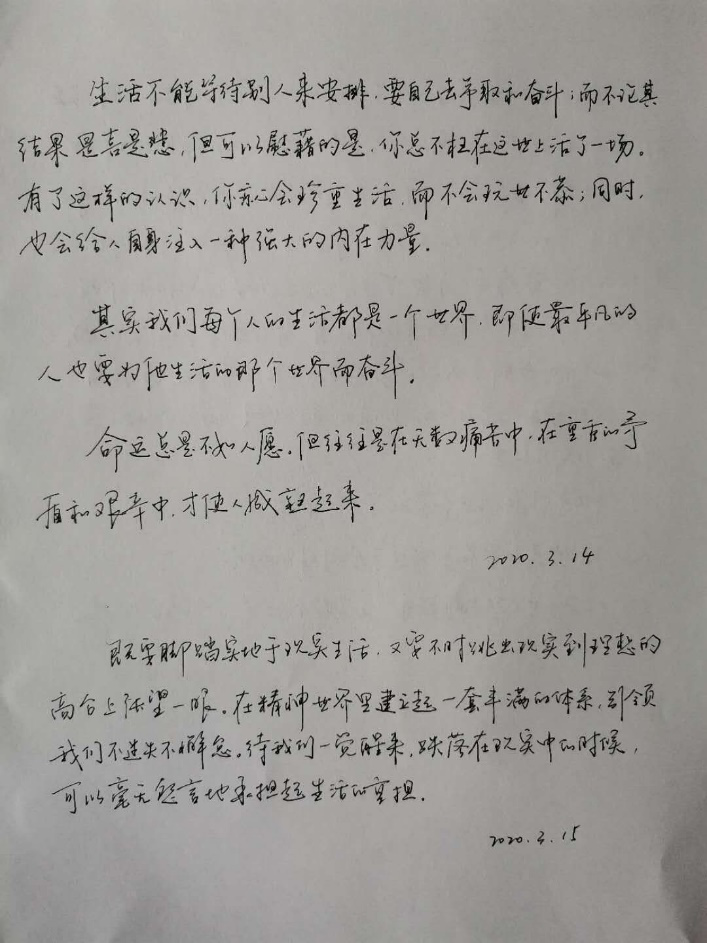 生活不能等待别人来安排，要自己去争取和奋斗；而不论其
结果是喜是悲，但可以慰藉的是，你总不枉在这世上活了一场。
有了这样的认识，你就会珍重生活，而不会玩世不恭；同时，
也会给人自身注入一种强大的内在力量。
其实我们每个人的生活都是一个世界，即使最平凡的
人也要为他生活的那个世界而奋斗。
命运总是不如人愿。但往往是在无数痛苦中，在重重的矛
盾和艰辛中，才使人成熟起来。
2020.3.14
既要脚踏实地于现实生活，又要不时跳出现实到理想的
高台上张望一眼。在精神世界里建立起一套丰满的体系，引领
我们不迷失不懈怠。待我们一觉醒来，跌落在现实中的时候，
可以毫无怨言地承担起生活的重担。
2020.3.15